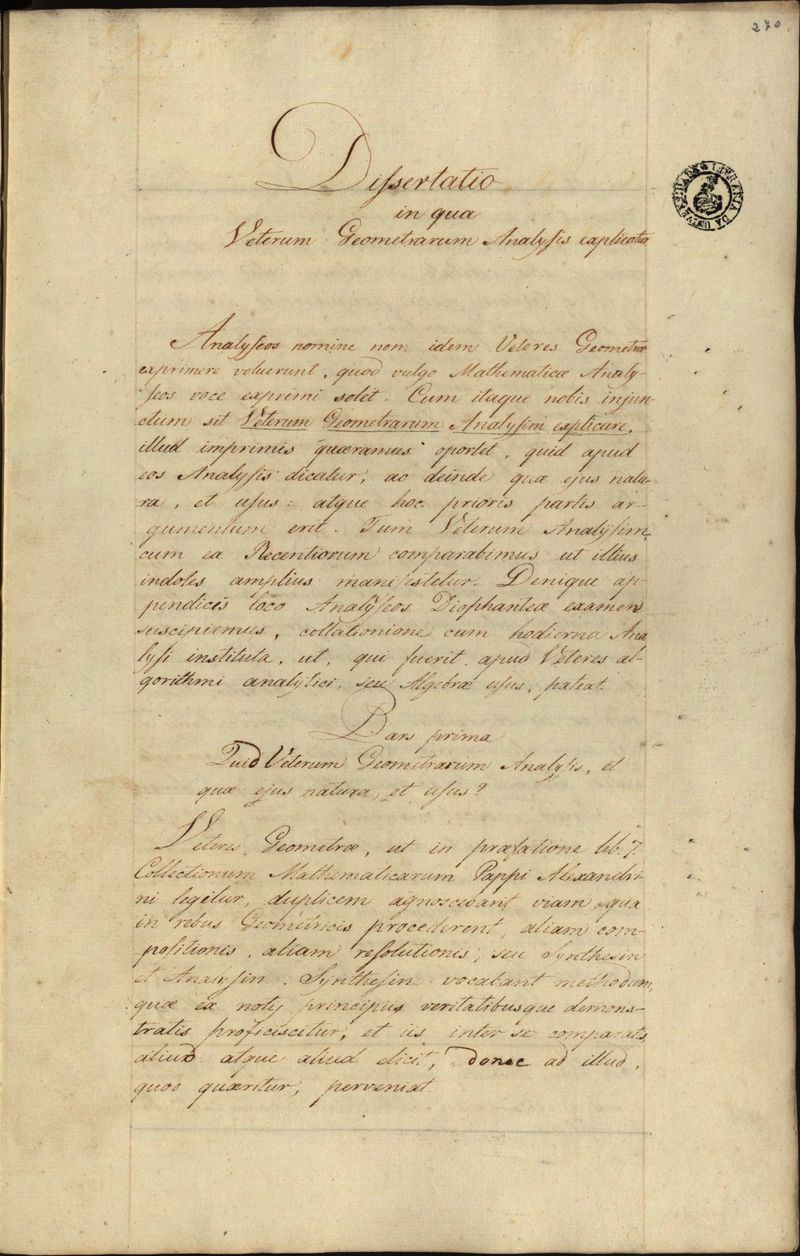 270
Dissertatio
in qua
Veterum Geometrarum Analysis explicatur
Analyseos nomine non idem Veteres Geometræ
exprimere voluerunt, quod vulgo Mathematicæ Analy-
seos voce exprimi solet. Cum itaque nobis injun-
ctum sit Veterum Geometrarum Analysim explicare,
illud imprimis quæramus oportet, quid apud
eos Analysis dicatur, ac deinde quæ ejus natu-
ra, et usus: atque hoc prioris partis ar-
gumentum erit. Tum Veterum Analysim
cum ea Recentiorum comparabimus ut illius
indoles amplius manifestetur. Denique ap-
pendicis loco Analyseos Diophanteæ examen
suscipiemus, collationione cum hodierna Ana
lysi instituta, ut, qui fuerit apud Veteres al-
gorithmi analytici, seu Algebræ usus, pateat.
Pars prima
Quid Veterum Geometrarum Analysis, et
quæ ejus natura, et usus?
Veteres Geometræ, ut in præfatione lib. 7.
Collectionum Mathematicarum Pappi Alexandri-
ni legitur, duplicem agnoscebant viam, qua
in rebus Geometricis procederent, aliam com-
positionis, aliam resolutionis, seu Synthesin
et Analysin. Synthesin vocabant methodum,
quæ ex notis principiis veritatibusque demons-
tratis proficiscitur, et iis inter se comparatis
aliud atque aliud elicit, donec ad illud,
quod quæritur, perveniat.